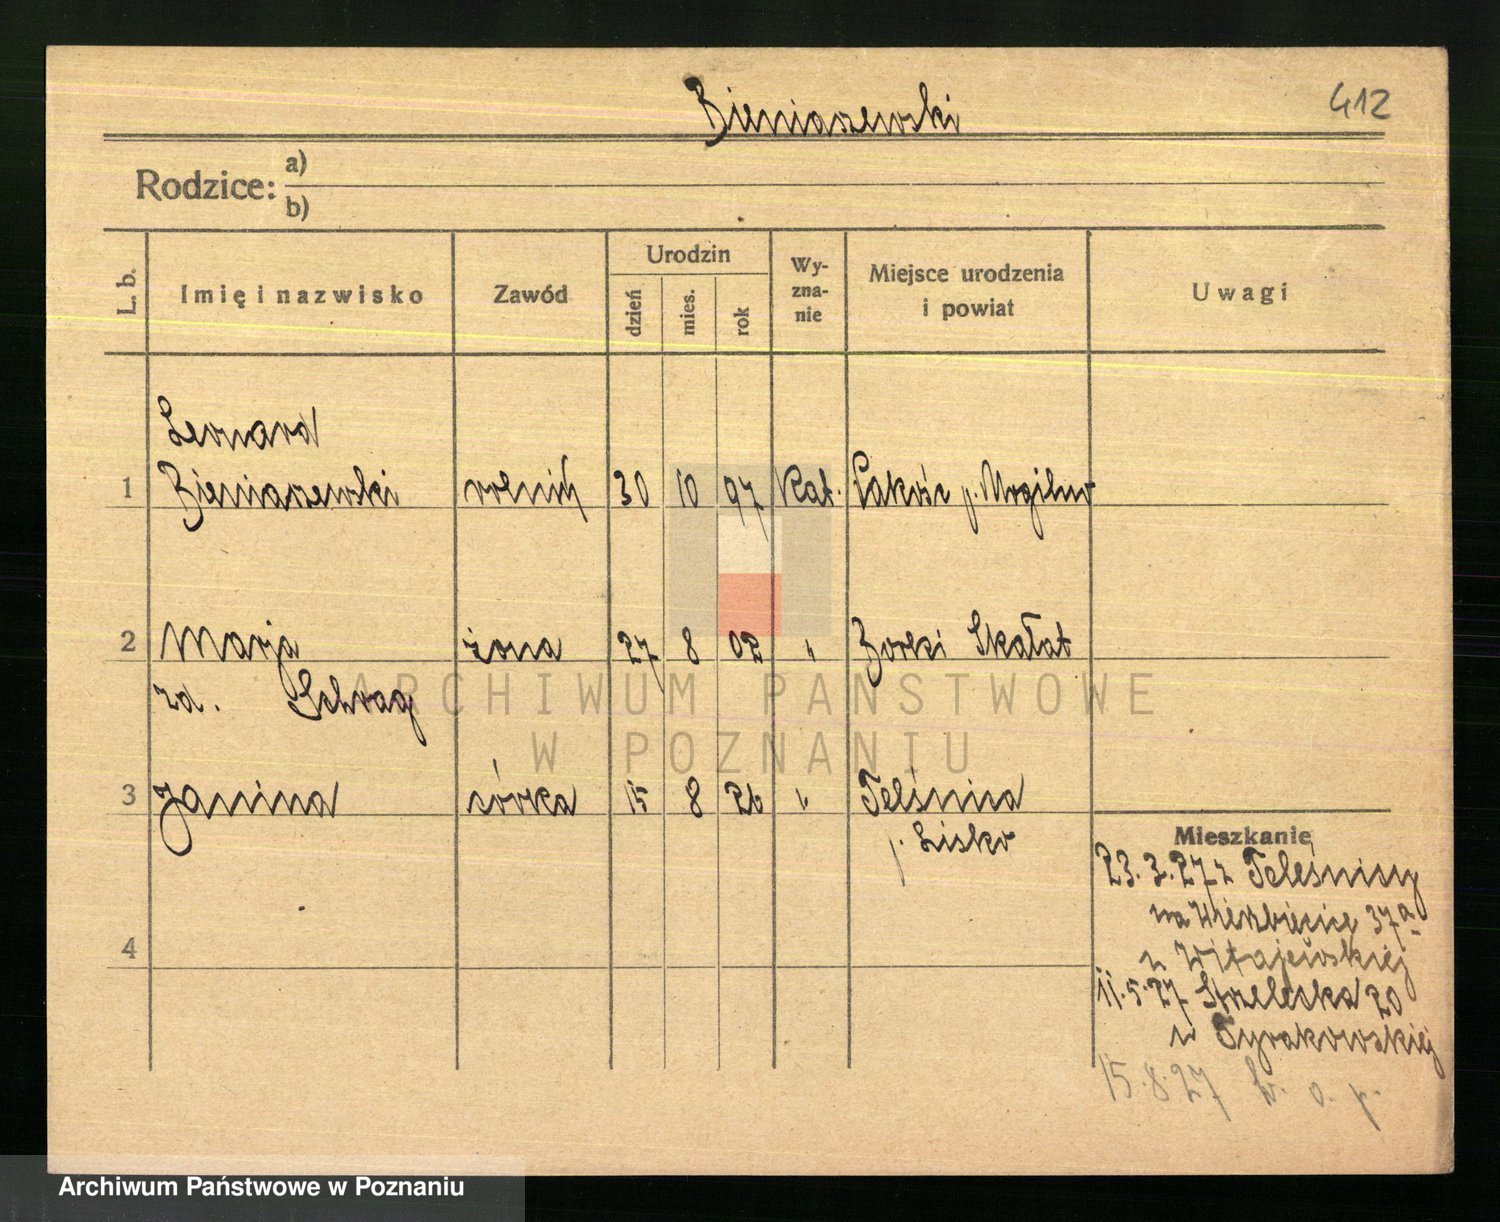 Bieniaszewski
412
Rodzice: a)
b)
L. b.
Imię i nazwisko
Zawód
Urodzin
dzień
mies.
rok
Wy-
zna-
nie
Miejsce urodzenia
i powiat
Uwagi
Leonard
1 Bieniaszewski rolnik 30 10 97 Kat. Pakość p. Mogilno
2 Marja żona 27 8 02 " Borki Skałat
zd. Schrag
3 Janina córka 15 8 26 " Teleśnica
p. Lisko
4
Mieszkanie
23.3.27 z Teleśnicy
na Wierzbięcice 37a
u Witajewskiej
11.5.27 Strzelecka 20
u Tyrakowskiej
15.8.27 b. o. p.
ARCHIWUM PAŃSTWOWE
W POZNANIU
Archiwum Państwowe w Poznaniu